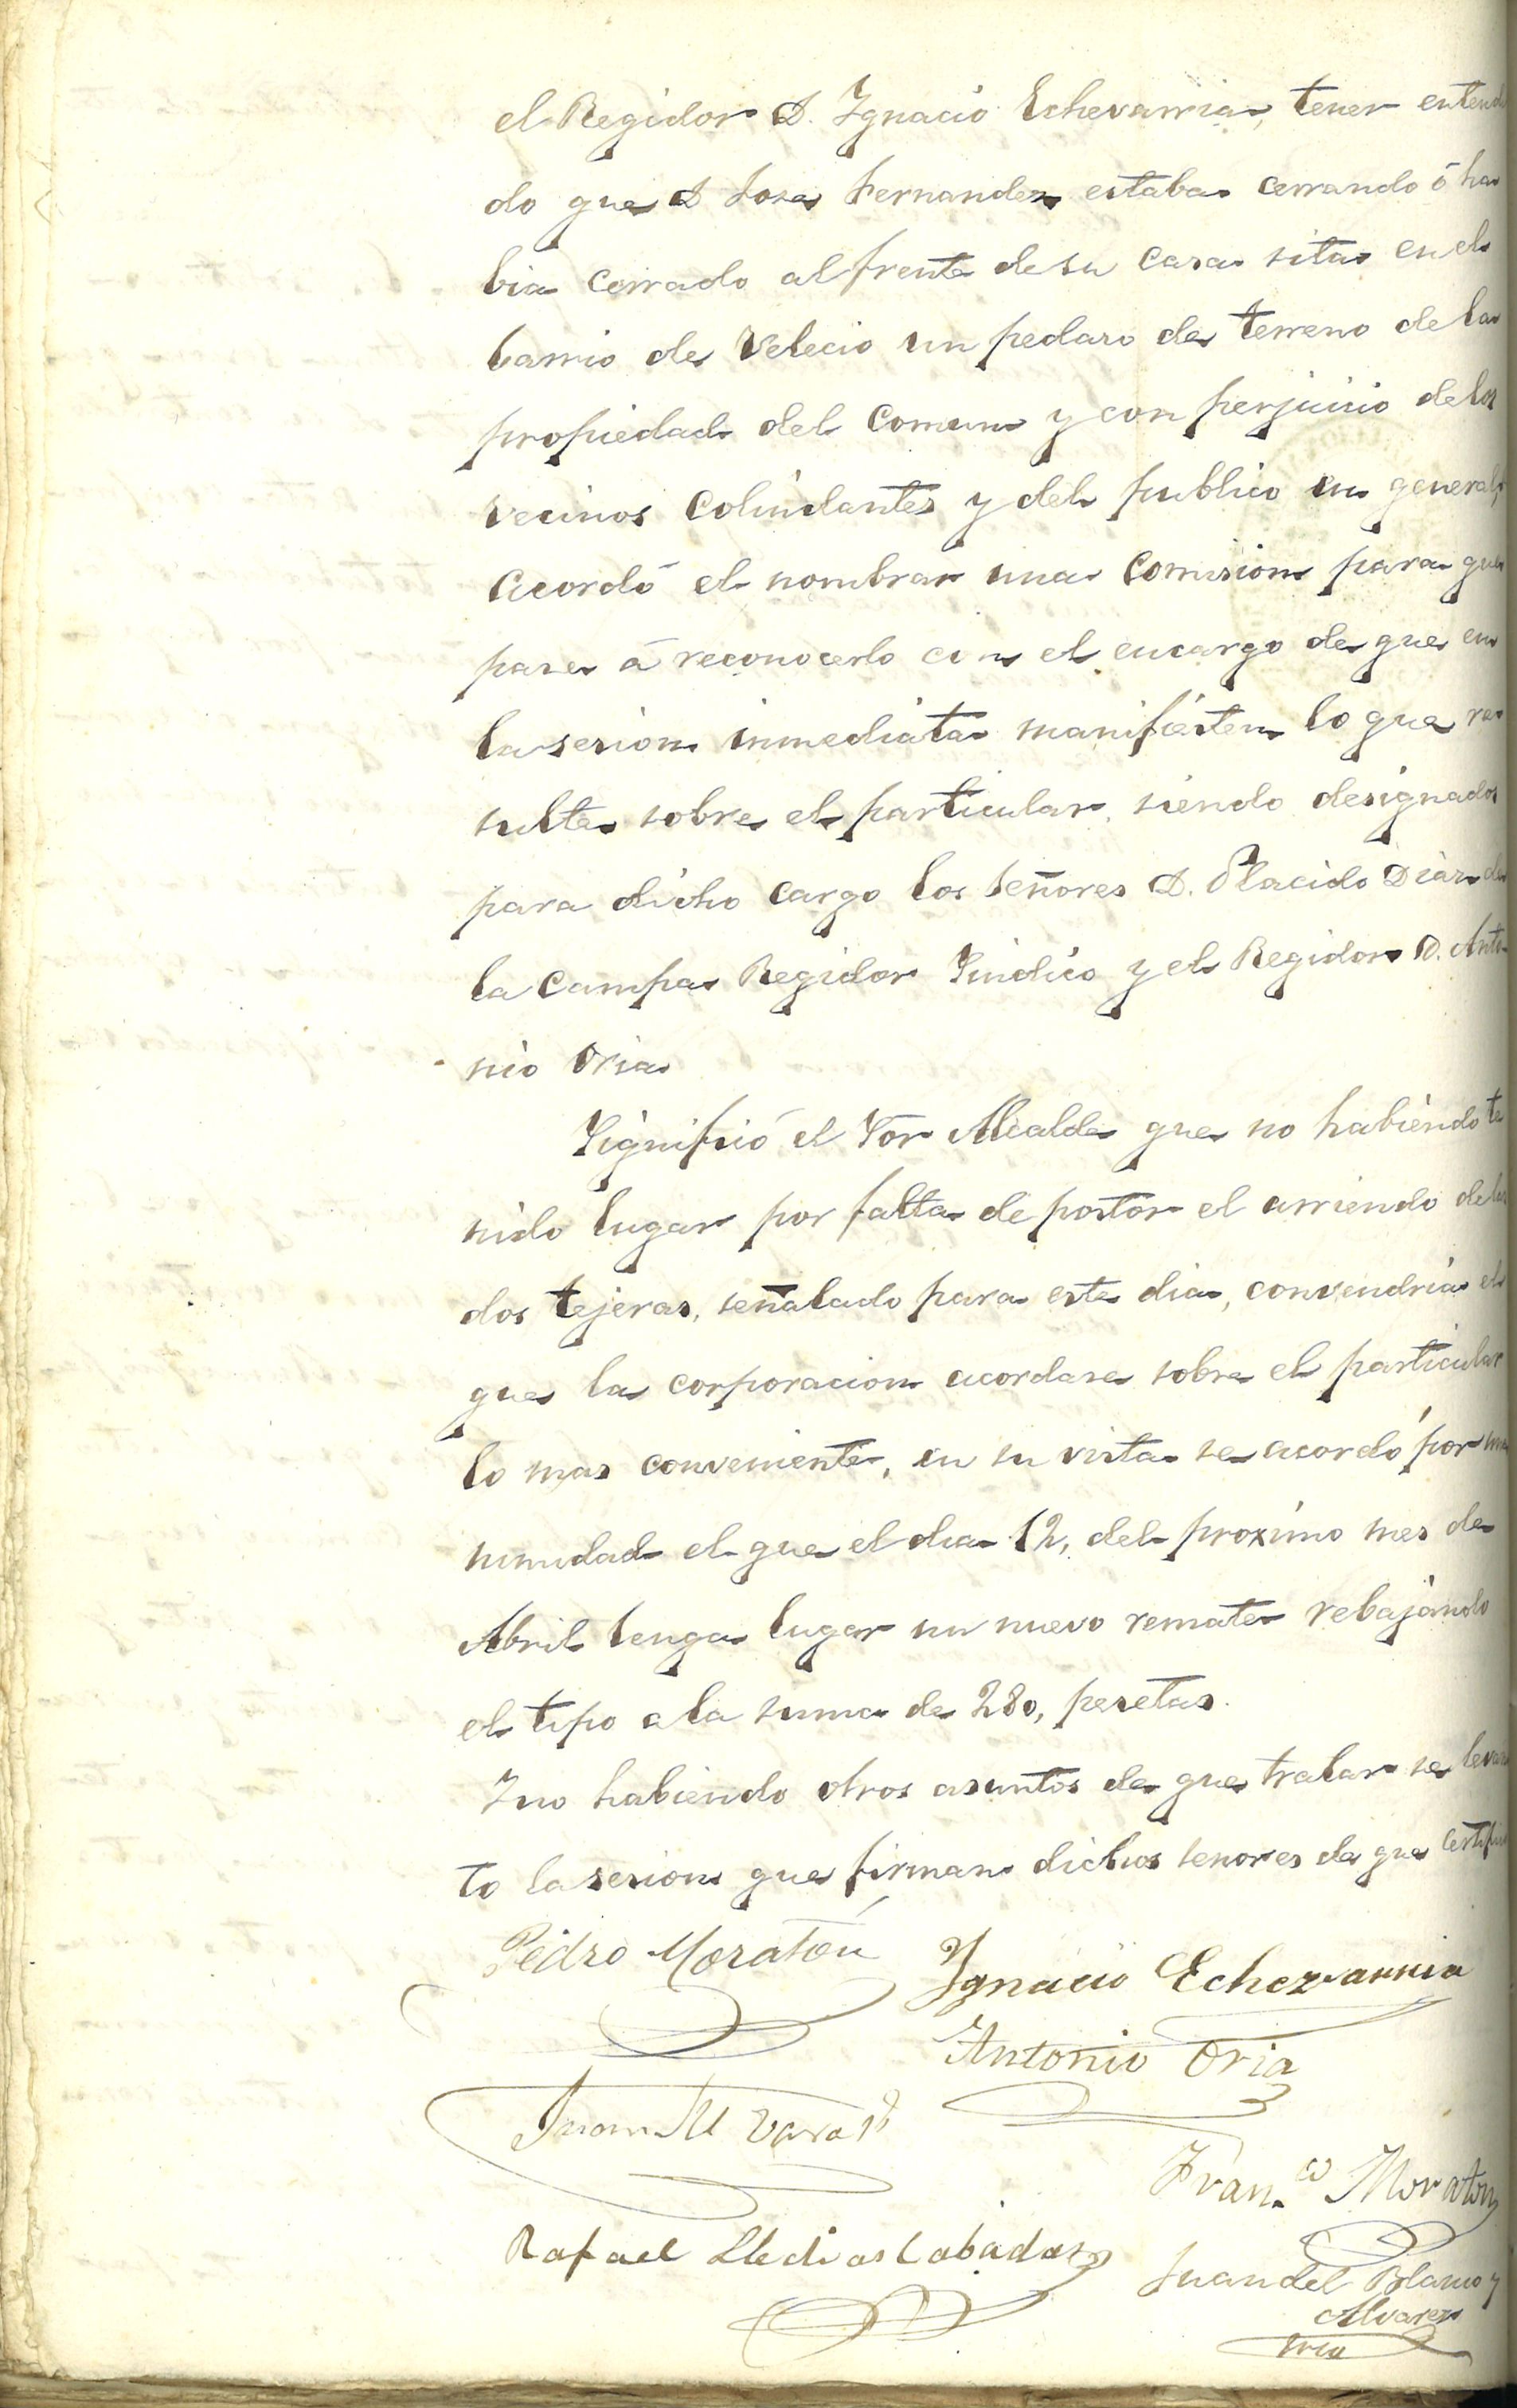 el Regidor D. Ignacio Echevarria, tener entendi
do que D Jose Fernandez estaba cerrando ó ha
bia cerrado al frente de su casa sita en el
barrio de Velecio un pedazo de terreno de la
propiedad del Comun y con perjuicio de los
vecinos colindantes y del publico en general,
acordó el nombrar una Comision para que
pase á reconocerlo con el encargo de que en
la sesion inmediata manifiesten lo que re
sulte sobre el particular, siendo designados
para dicho cargo los señores D. Placido Diaz de
la Campa Regidor Sindico y el Regidor D. Anto
nio Oria
Significó el Sor Alcalde que no habiendo te
nido lugar por falta de postor el arriendo de las
dos tejeras, señalado para este dia, convendria el
que la corporacion acordase sobre el particular
lo mas conveniente, en su vista se acordó por una
nimidad el que el dia 12, del proximo mes de
Abril tenga lugar un nuevo remate rebajando
el tipo a la suma de 280, pesetas.
Y no habiendo otros asuntos de que tratar se levan
to la sesion que firman dichos senores de que certifico
Pedro Moratón
Ignacio Echezarria
Antonio Oria
Juan M
Fran.co Moraton
Rafael Lledias Cabadas
Juan del Blanco y
Alvarez